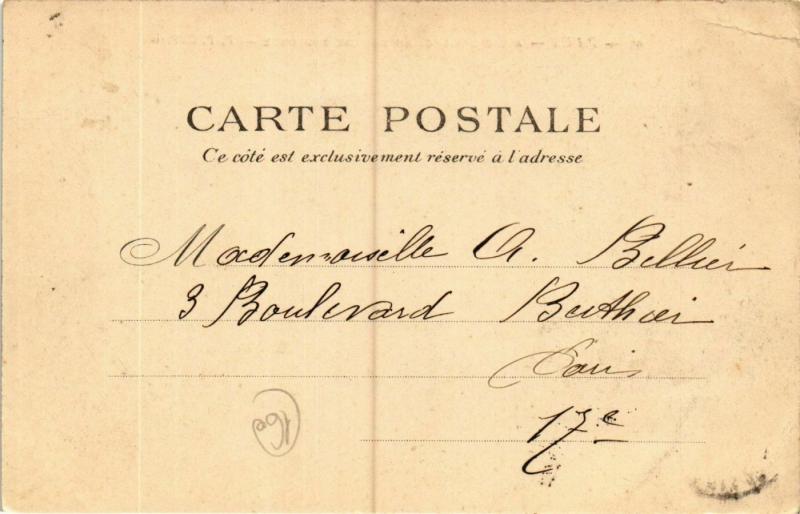 CARTE POSTALE
Ce côté est exclusivement réservé à l'adresse
Mademoiselle A. Bellier
3 Boulevard Berthier
Paris
17e
16e